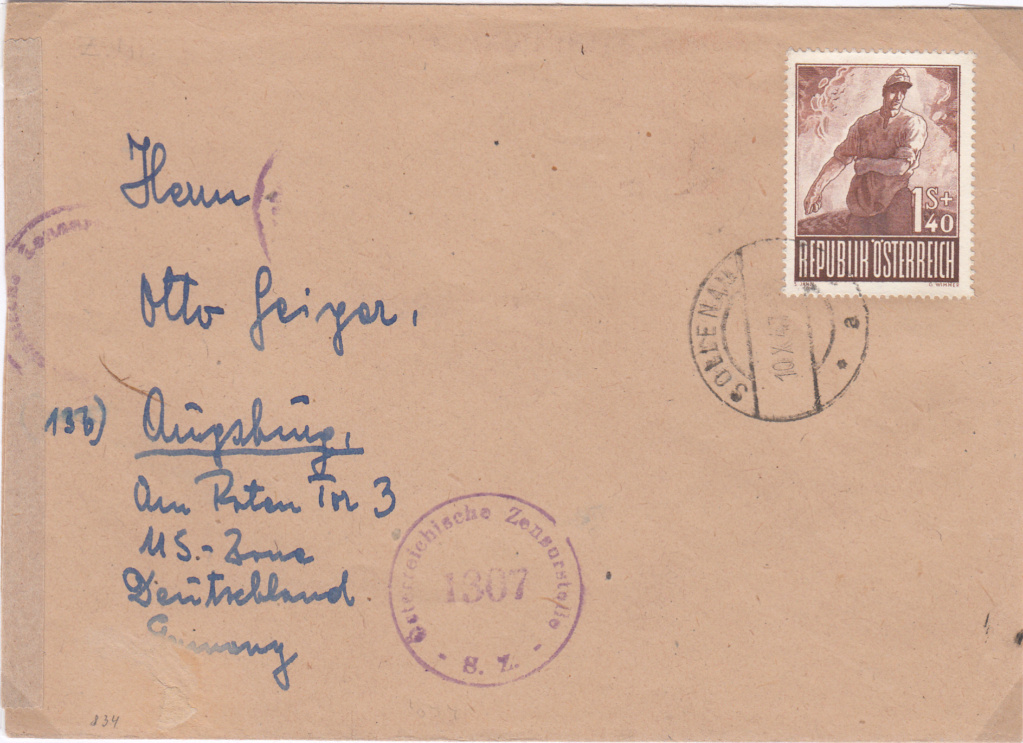 Herrn
Otto Geiger,
13b) Augsburg,
Am Roten Tor 3
US.-Zone
Deutschland
Germany
1S+
40
REPUBLIK ÖSTERREICH
SOLLENAU
10.X.47
a
Österreichische Zensurstelle
1307
- S. Z. -
Zensur
834